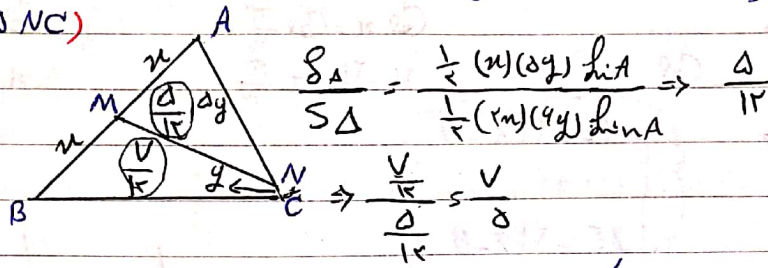 ۵ NC)
A
x
M
۵/۱۲
۵y
x
۷/۱۲
y
N
B
C
S△/S△ = ½ (x)(۵y) sinA / ½ (۲x)(۶y) sinA ⇒ ۵/۱۲
⇒ ۷/۱۲ / ۵/۱۲ = ۷/۵